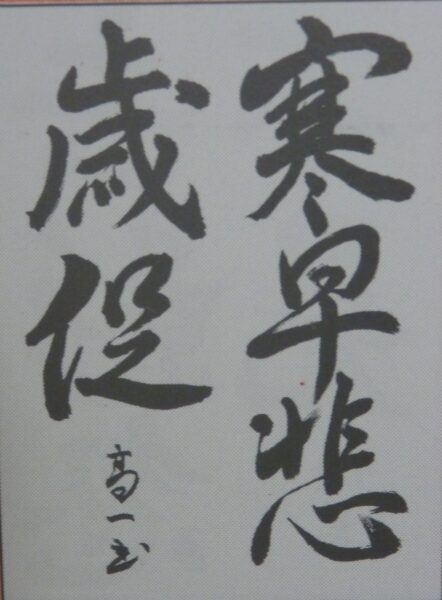 寒早悲
歳促
高一玉